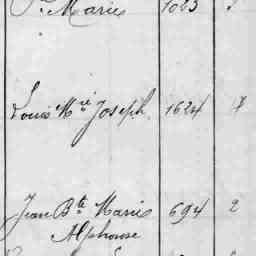 Marie 1083
Louis Mie Joseph 1624
Jean Bte Marie 694 2
Alphonse